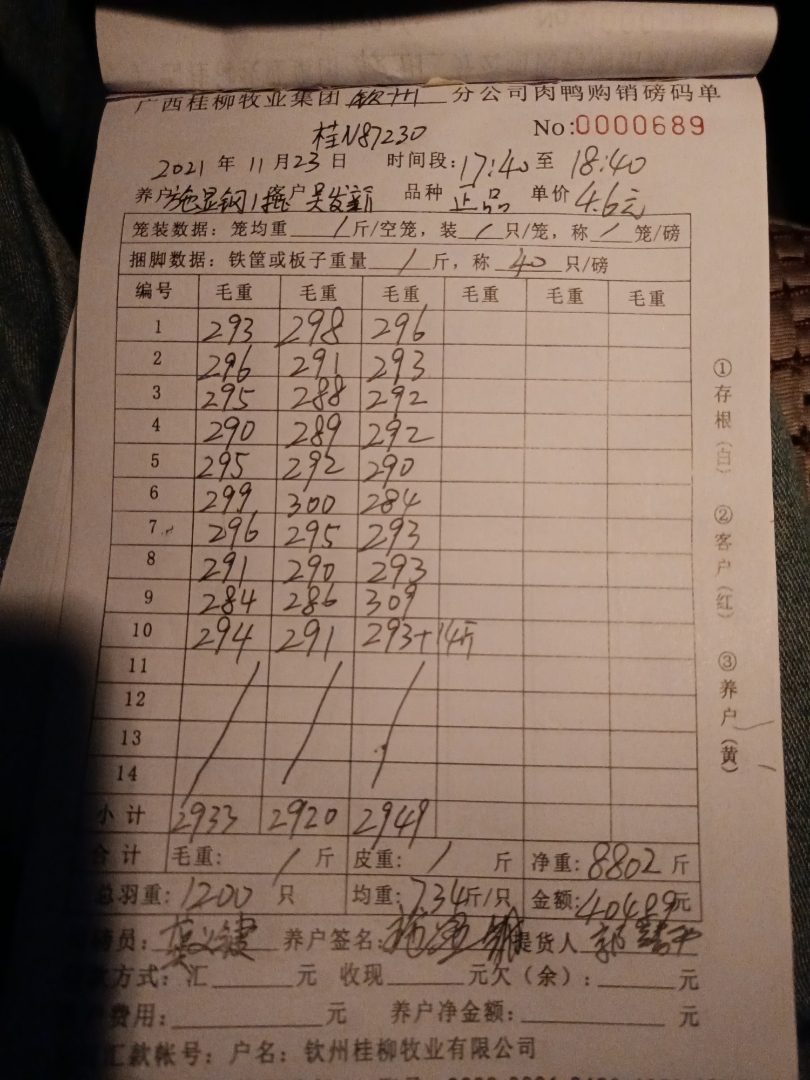 广西桂柳牧业集团 钦州 分公司肉鸭购销磅码单
桂N87230 No:0000689
2021 年 11 月 23 日 时间段:17:40 至 18:40
养户 施显钢 户 吴发新 品种 正品 单价 4.6元
笼装数据: 笼均重 / 斤/空笼, 装 / 只/笼, 称 / 笼/磅
捆脚数据: 铁筐或板子重量 / 斤, 称 40 只/磅
编号 毛重 毛重 毛重 毛重 毛重 毛重
1 293 298 296
2 296 291 293
3 295 288 292
4 290 289 292
5 295 292 290
6 299 300 284
7 296 295 293
8 291 290 293
9 284 286 309
10 294 291 293+14斤
11
12
13
14
小计 2933 2920 2949
合计 毛重: / 斤 皮重: / 斤 净重: 8802 斤
总羽重: 1200 只 均重: 7.34斤/只 金额: 40489元
员: 养户签名: 提货人
款方式: 汇 元 收现 元欠(余): 元
费用: 元 养户净金额: 元
汇款帐号: 户名: 钦州桂柳牧业有限公司
①存根(白) ②客户(红) ③养户(黄)